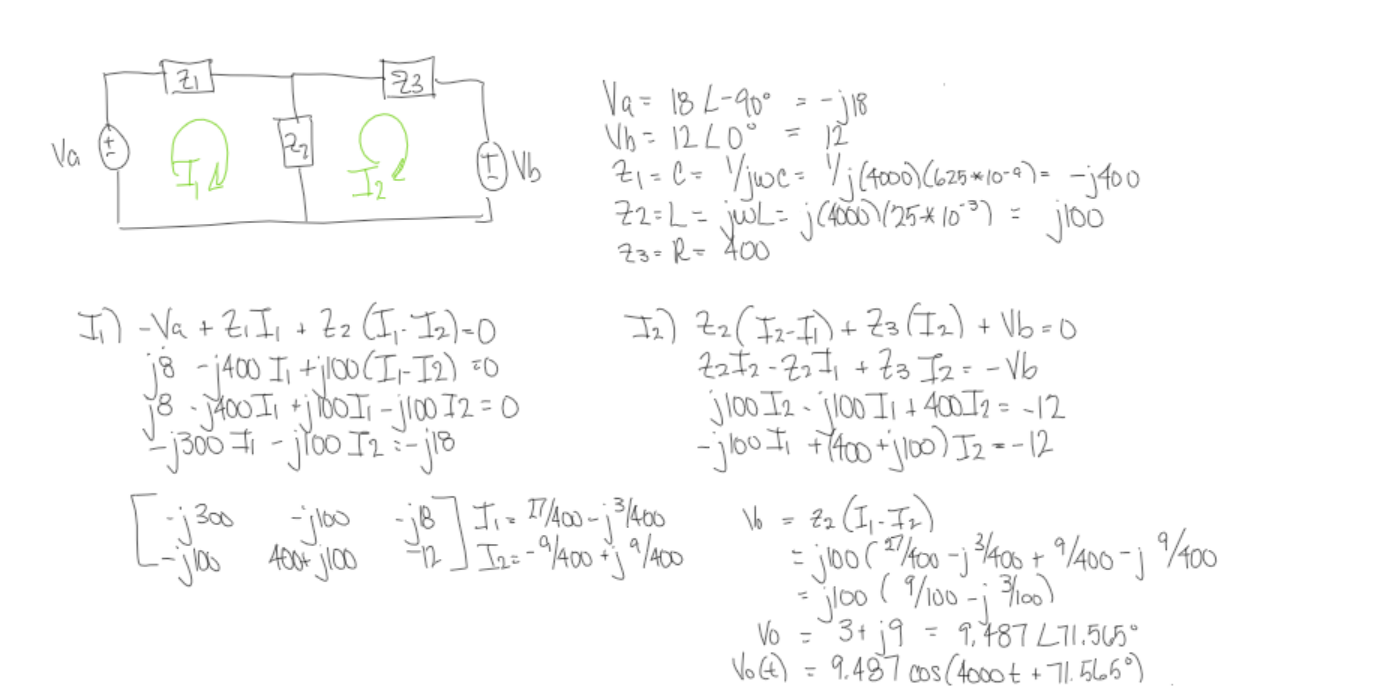 Z1
Z3
Va
Z2
Vb
I1
I2
Va = 18 ∠-90° = -j18
Vb = 12∠0° = 12
Z1 = C = 1/jwC = 1/j(4000)(625*10⁻⁹) = -j400
Z2 = L = jwL = j(4000)(25*10⁻³) = j100
Z3 = R = 400
I1) -Va + Z1I1 + Z2(I1-I2)=0
j8 - j400 I1 + j100(I1-I2) =0
j8 - j400I1 + j100I1 - j100I2 = 0
-j300 I1 - j100 I2 = -j18
I2) Z2(I2-I1) + Z3(I2) + Vb = 0
Z2I2 - Z2I1 + Z3 I2 = -Vb
j100 I2 - j100 I1 + 400I2 = -12
-j100 I1 + (400 + j100) I2 = -12
[-j300 -j100 -j18] I1 = 27/400 - j 3/400
[-j100 400+j100 -12] I2 = -9/400 + j 9/400
Vo = Z2(I1-I2)
= j100(27/400 - j 3/400 + 9/400 - j 9/400
= j100 (9/100 - j 3/100)
Vo = 3+j9 = 9.487 ∠71.565°
Vo(t) = 9.487 cos(4000t + 71.565°)